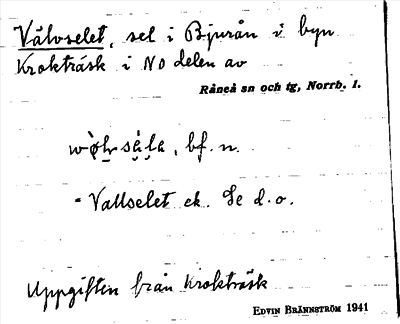 Välvselet, sel i Bjurån i byn
Krokträsk i NO delen av
Råneå sn och tg, Norrb. l.
bf. n.
= Vallselet ek. Se d.o.
Uppgiften från Krokträsk
EDVIN BRÄNNSTRÖM 1941